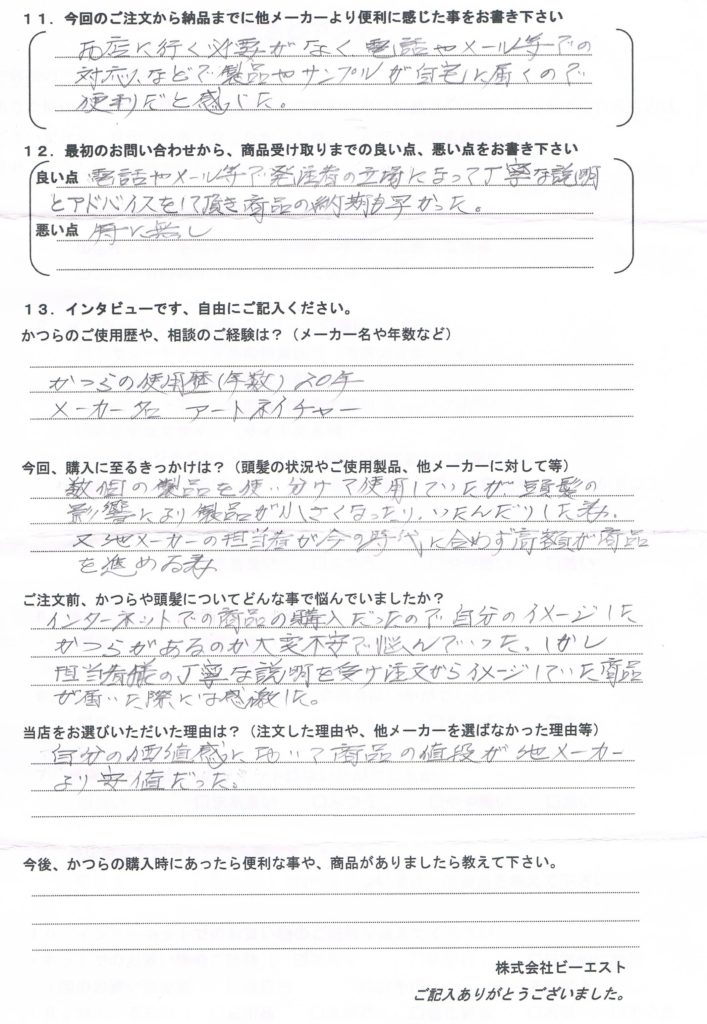 11．今回のご注文から納品までに他メーカーより便利に感じた事をお書き下さい
店に行く必要がなく電話やメール等での
対応などで製品やサンプルが自宅に届くので
便利だと感じた。
12．最初のお問い合わせから、商品受け取りまでの良い点、悪い点をお書き下さい
良い点 電話やメール等で発注者の立場になって丁寧な説明
とアドバイスをして頂き商品の納期も早かった。
悪い点 特に無し
13．インタビューです、自由にご記入ください。
かつらのご使用歴や、相談のご経験は？（メーカー名や年数など）
かつらの使用歴(年数) 20年
メーカー名 アートネイチャー
今回、購入に至るきっかけは？（頭髪の状況やご使用製品、他メーカーに対して等）
数個の製品を使い分けて使用していたが頭髪の
影響により製品が小さくなったり、いたんだりした為。
又他メーカーの担当者が今の時代に合わず高額が商品
を進める為
ご注文前、かつらや頭髪についてどんな事で悩んでいましたか？
インターネットでの商品の購入だったので自分のイメージした
かつらがあるのか大変不安で悩んでいった。しかし
担当者様の丁寧な説明を受け注文からイメージしていた商品
が届いた際には感激した。
当店をお選びいただいた理由は？（注文した理由や、他メーカーを選ばなかった理由等）
自分の価値感に於いて商品の値段が他メーカー
より安値だった。
今後、かつらの購入時にあったら便利な事や、商品がありましたら教えて下さい。
株式会社ビーエスト
ご記入ありがとうございました。